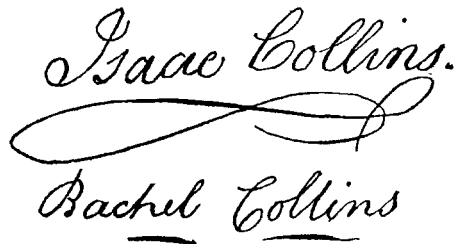 Isaac Collins.
Rachel Collins